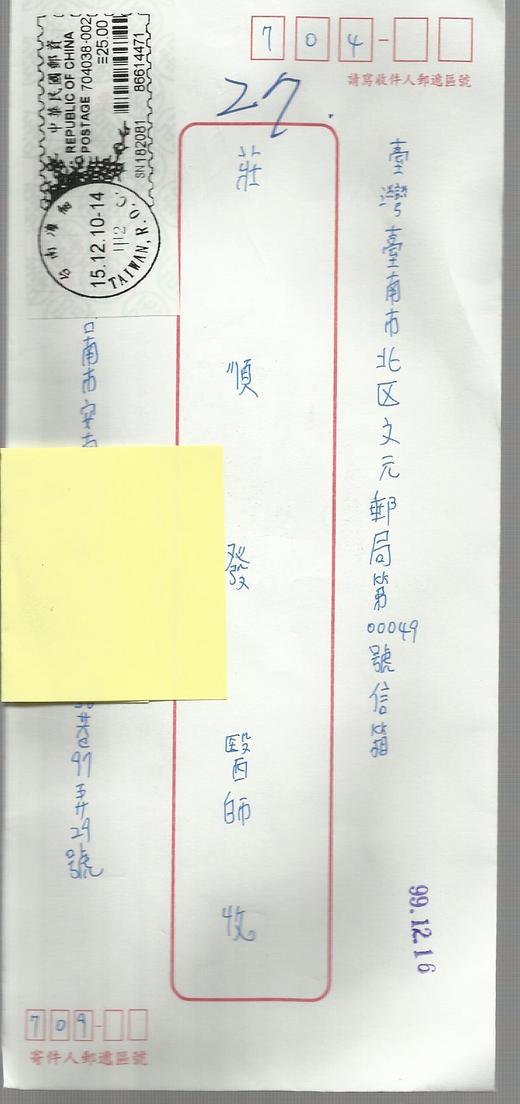 中華民國郵資
REPUBLIC OF CHINA
POSTAGE 704038-002
=25.00
SN182081 86614471
15.12.10-14
TAIWAN, R.O.C.
704
請寫收件人郵遞區號
27.
臺灣臺南市北区文元郵局第00049號信箱
莊順發醫師收
南市安南
巷97弄29號
99.12.16
709
寄件人郵遞區號